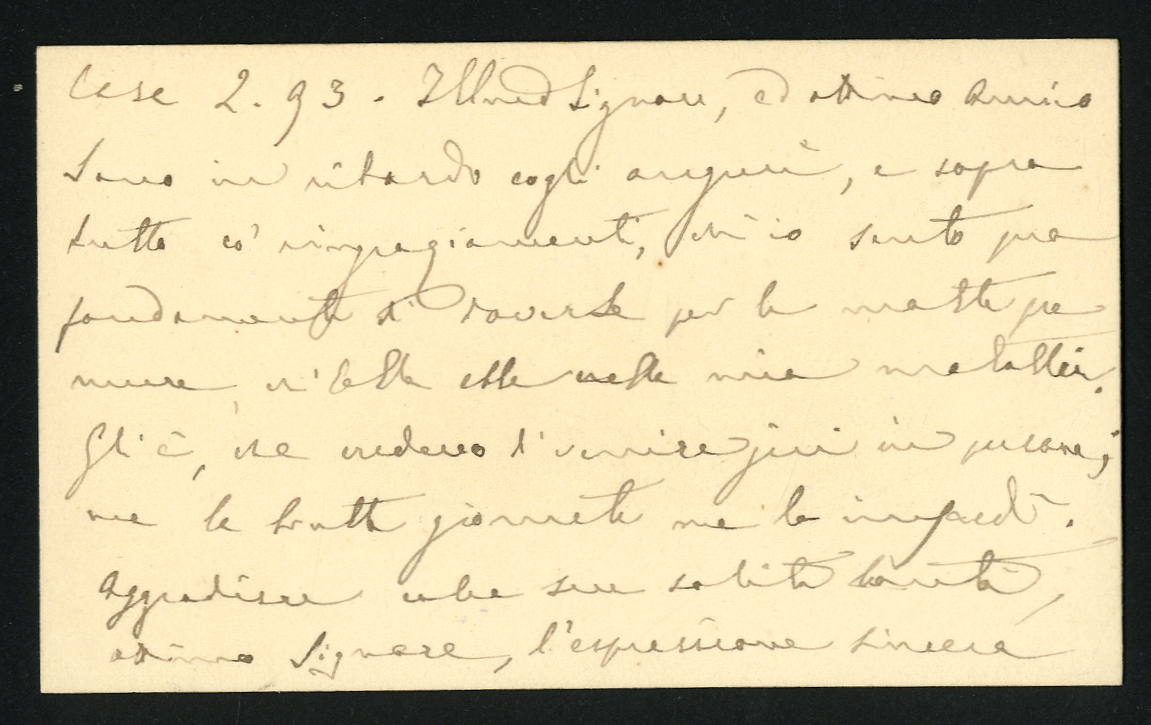 Casa 2.93. Illmo Signore, ed ottimo Amico
Sono in ritardo cogli auguri, e sopra
tutto co' ringraziamenti, ch'io sento pro
fondamente di doverle per le molte pre
mure, ch'Ella ebbe nella mia malattia.
Gli è, che credevo di venire giù in persona;
ma la brutta giornata me lo impedì.
Aggradisca colla sua solita bontà,
ottimo Signore, l'espressione sincera